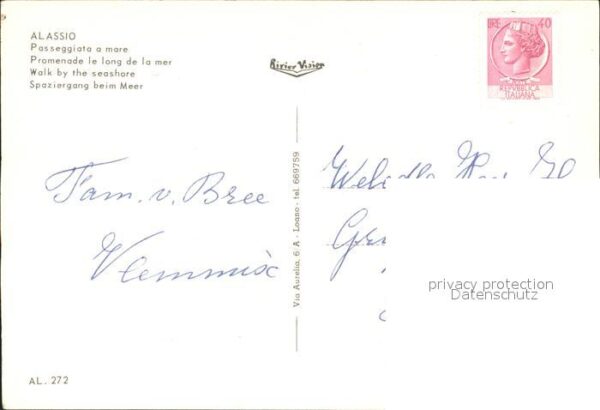 ALASSIO
Passeggiata a mare
Promenade le long de la mer
Walk by the seashore
Spaziergang beim Meer
Rivier Vision
LIRE 40
REPVBBLICA
ITALIANA
Fam. v. Bree
Vlemmix
Via Aurelia, 6 A - Loano - tel. 669759
privacy protection
Datenschutz
AL. 272